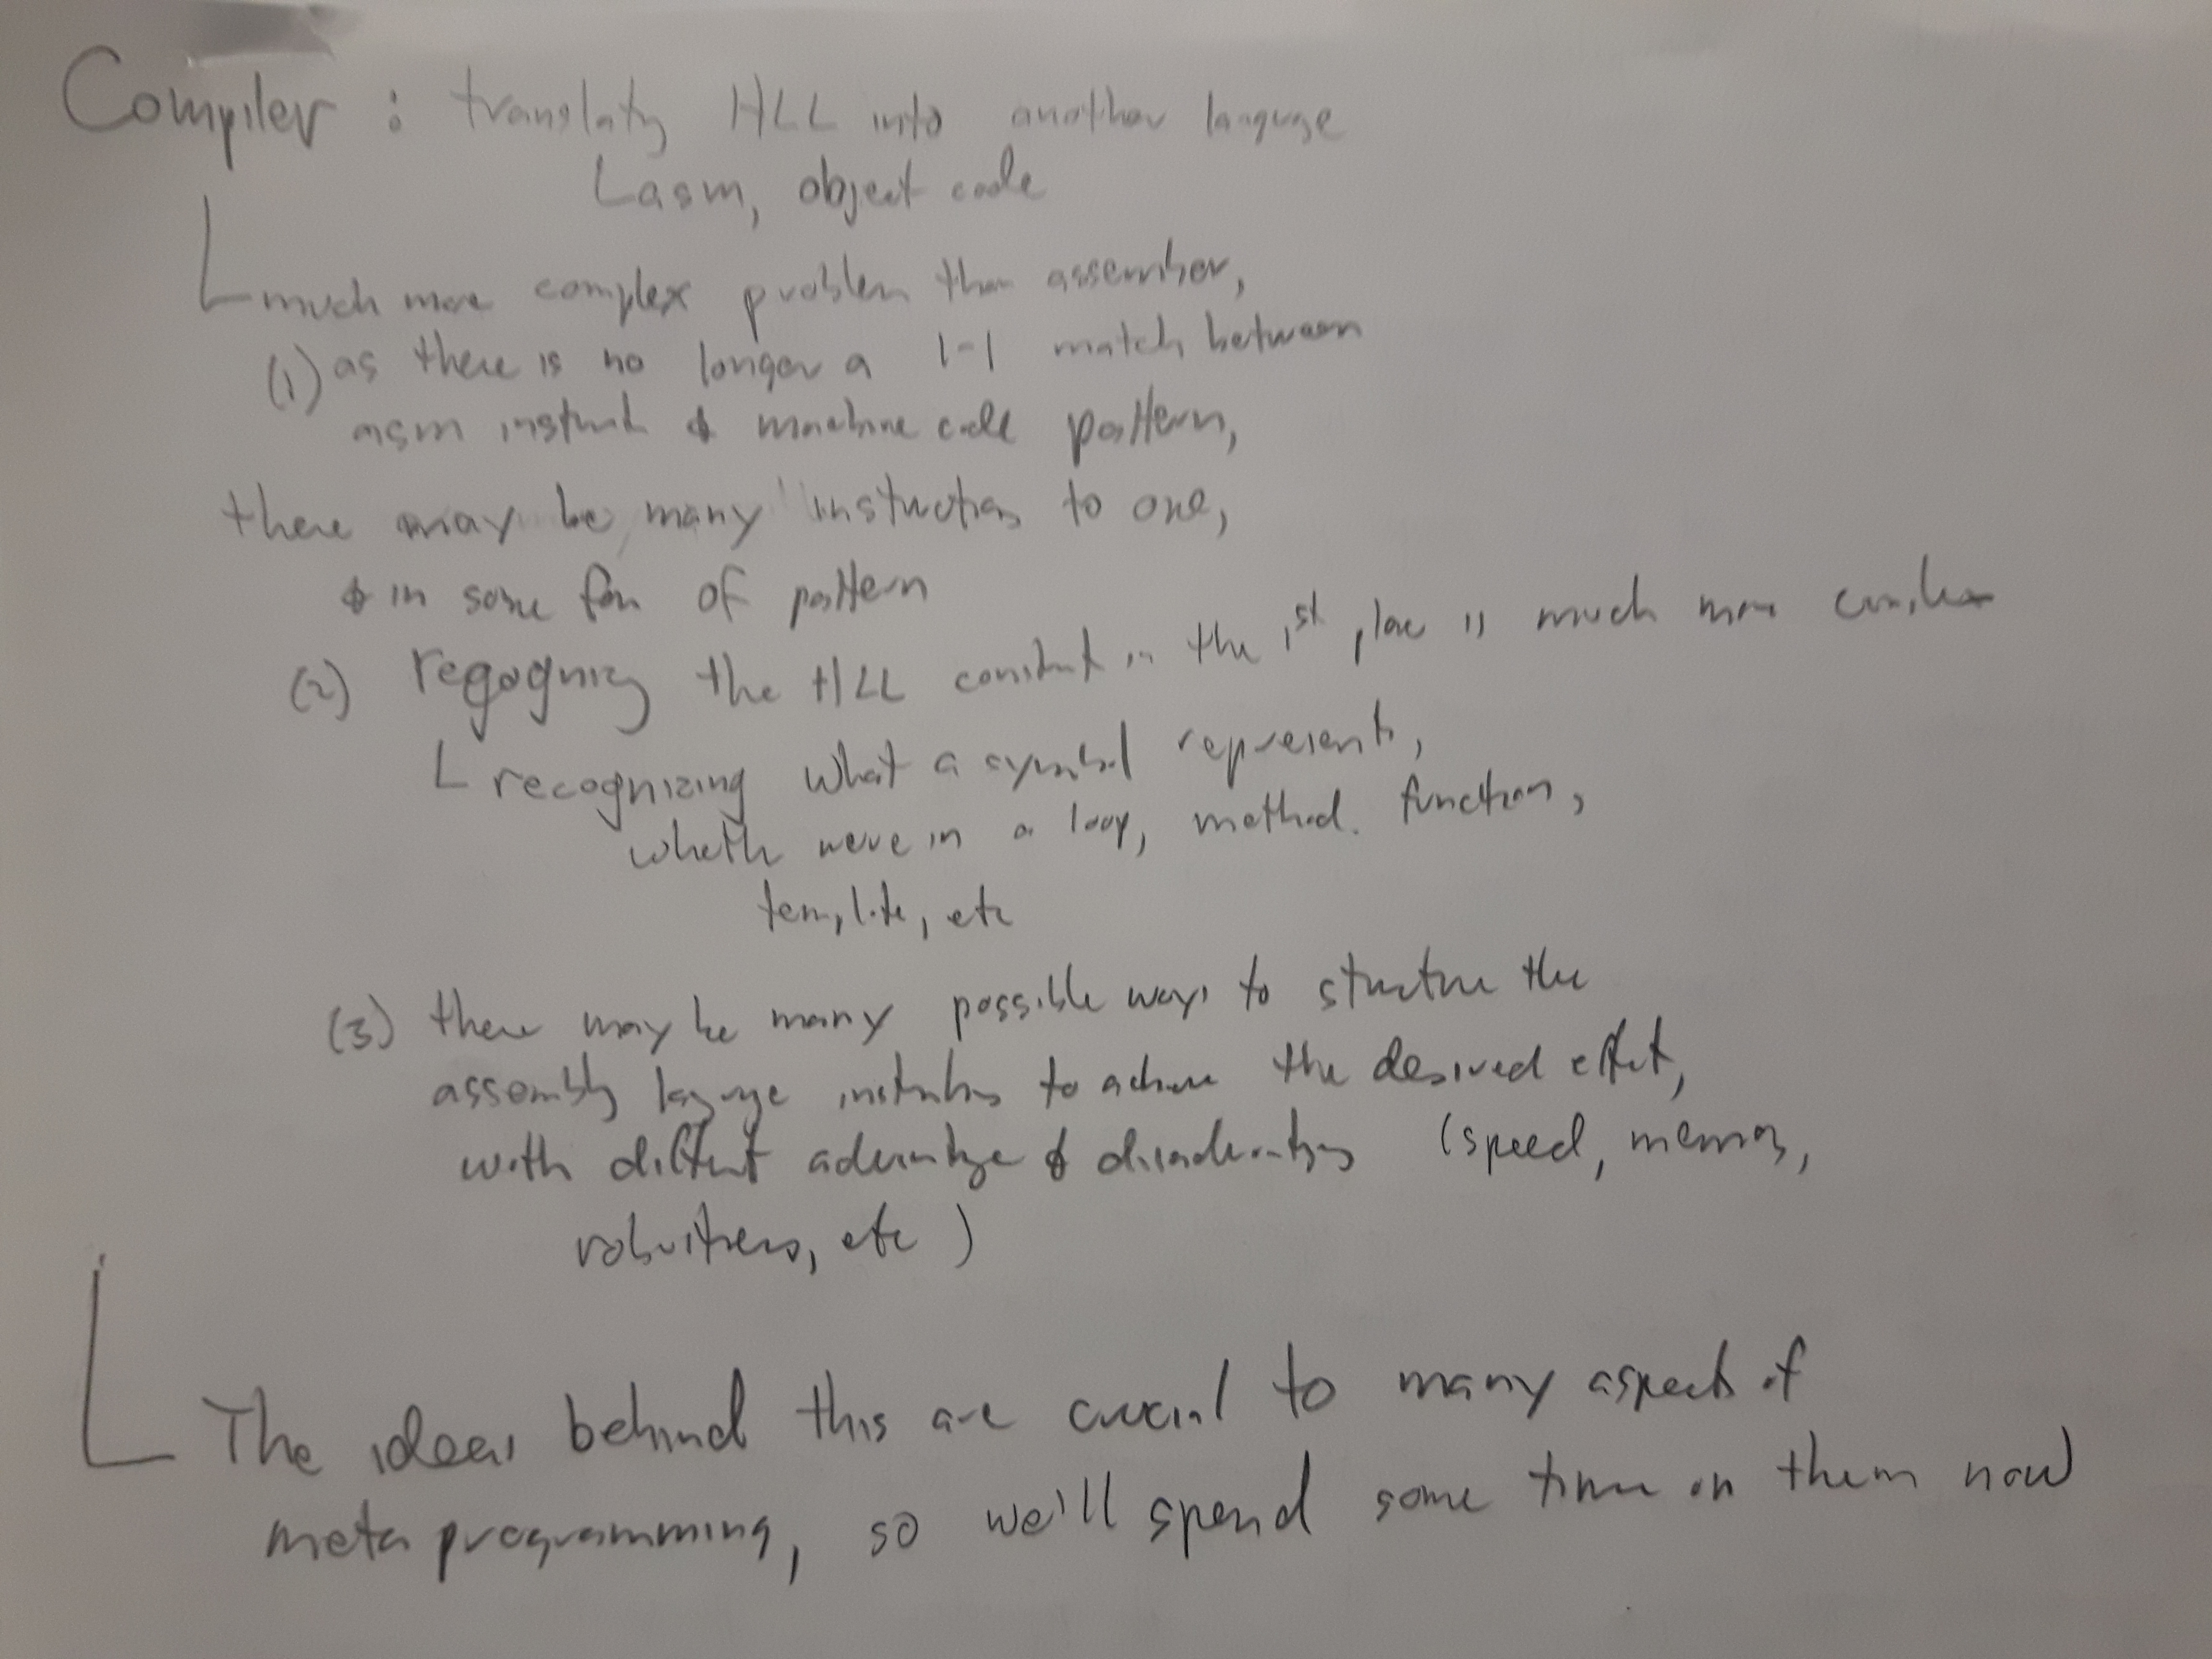 Compiler : translating HLL into another language
asm, object code
much more complex problem than assembler,
(1) as there is no longer a 1-1 match between
asm instruct & machine code pattern,
there may be many instructions to one,
& in some form of pattern
(2) regognizing the HLL construct in the 1st place is much more complex
recognizing what a symbol represents,
whether we're in a loop, method, function,
template, etc
(3) there may be many possible ways to structure the
assembly language instructions to achieve the desired effect,
with different advantage & disadvantages (speed, memory,
robustness, etc)
The ideas behind this are crucial to many aspects of
meta programming, so we'll spend some time on them now